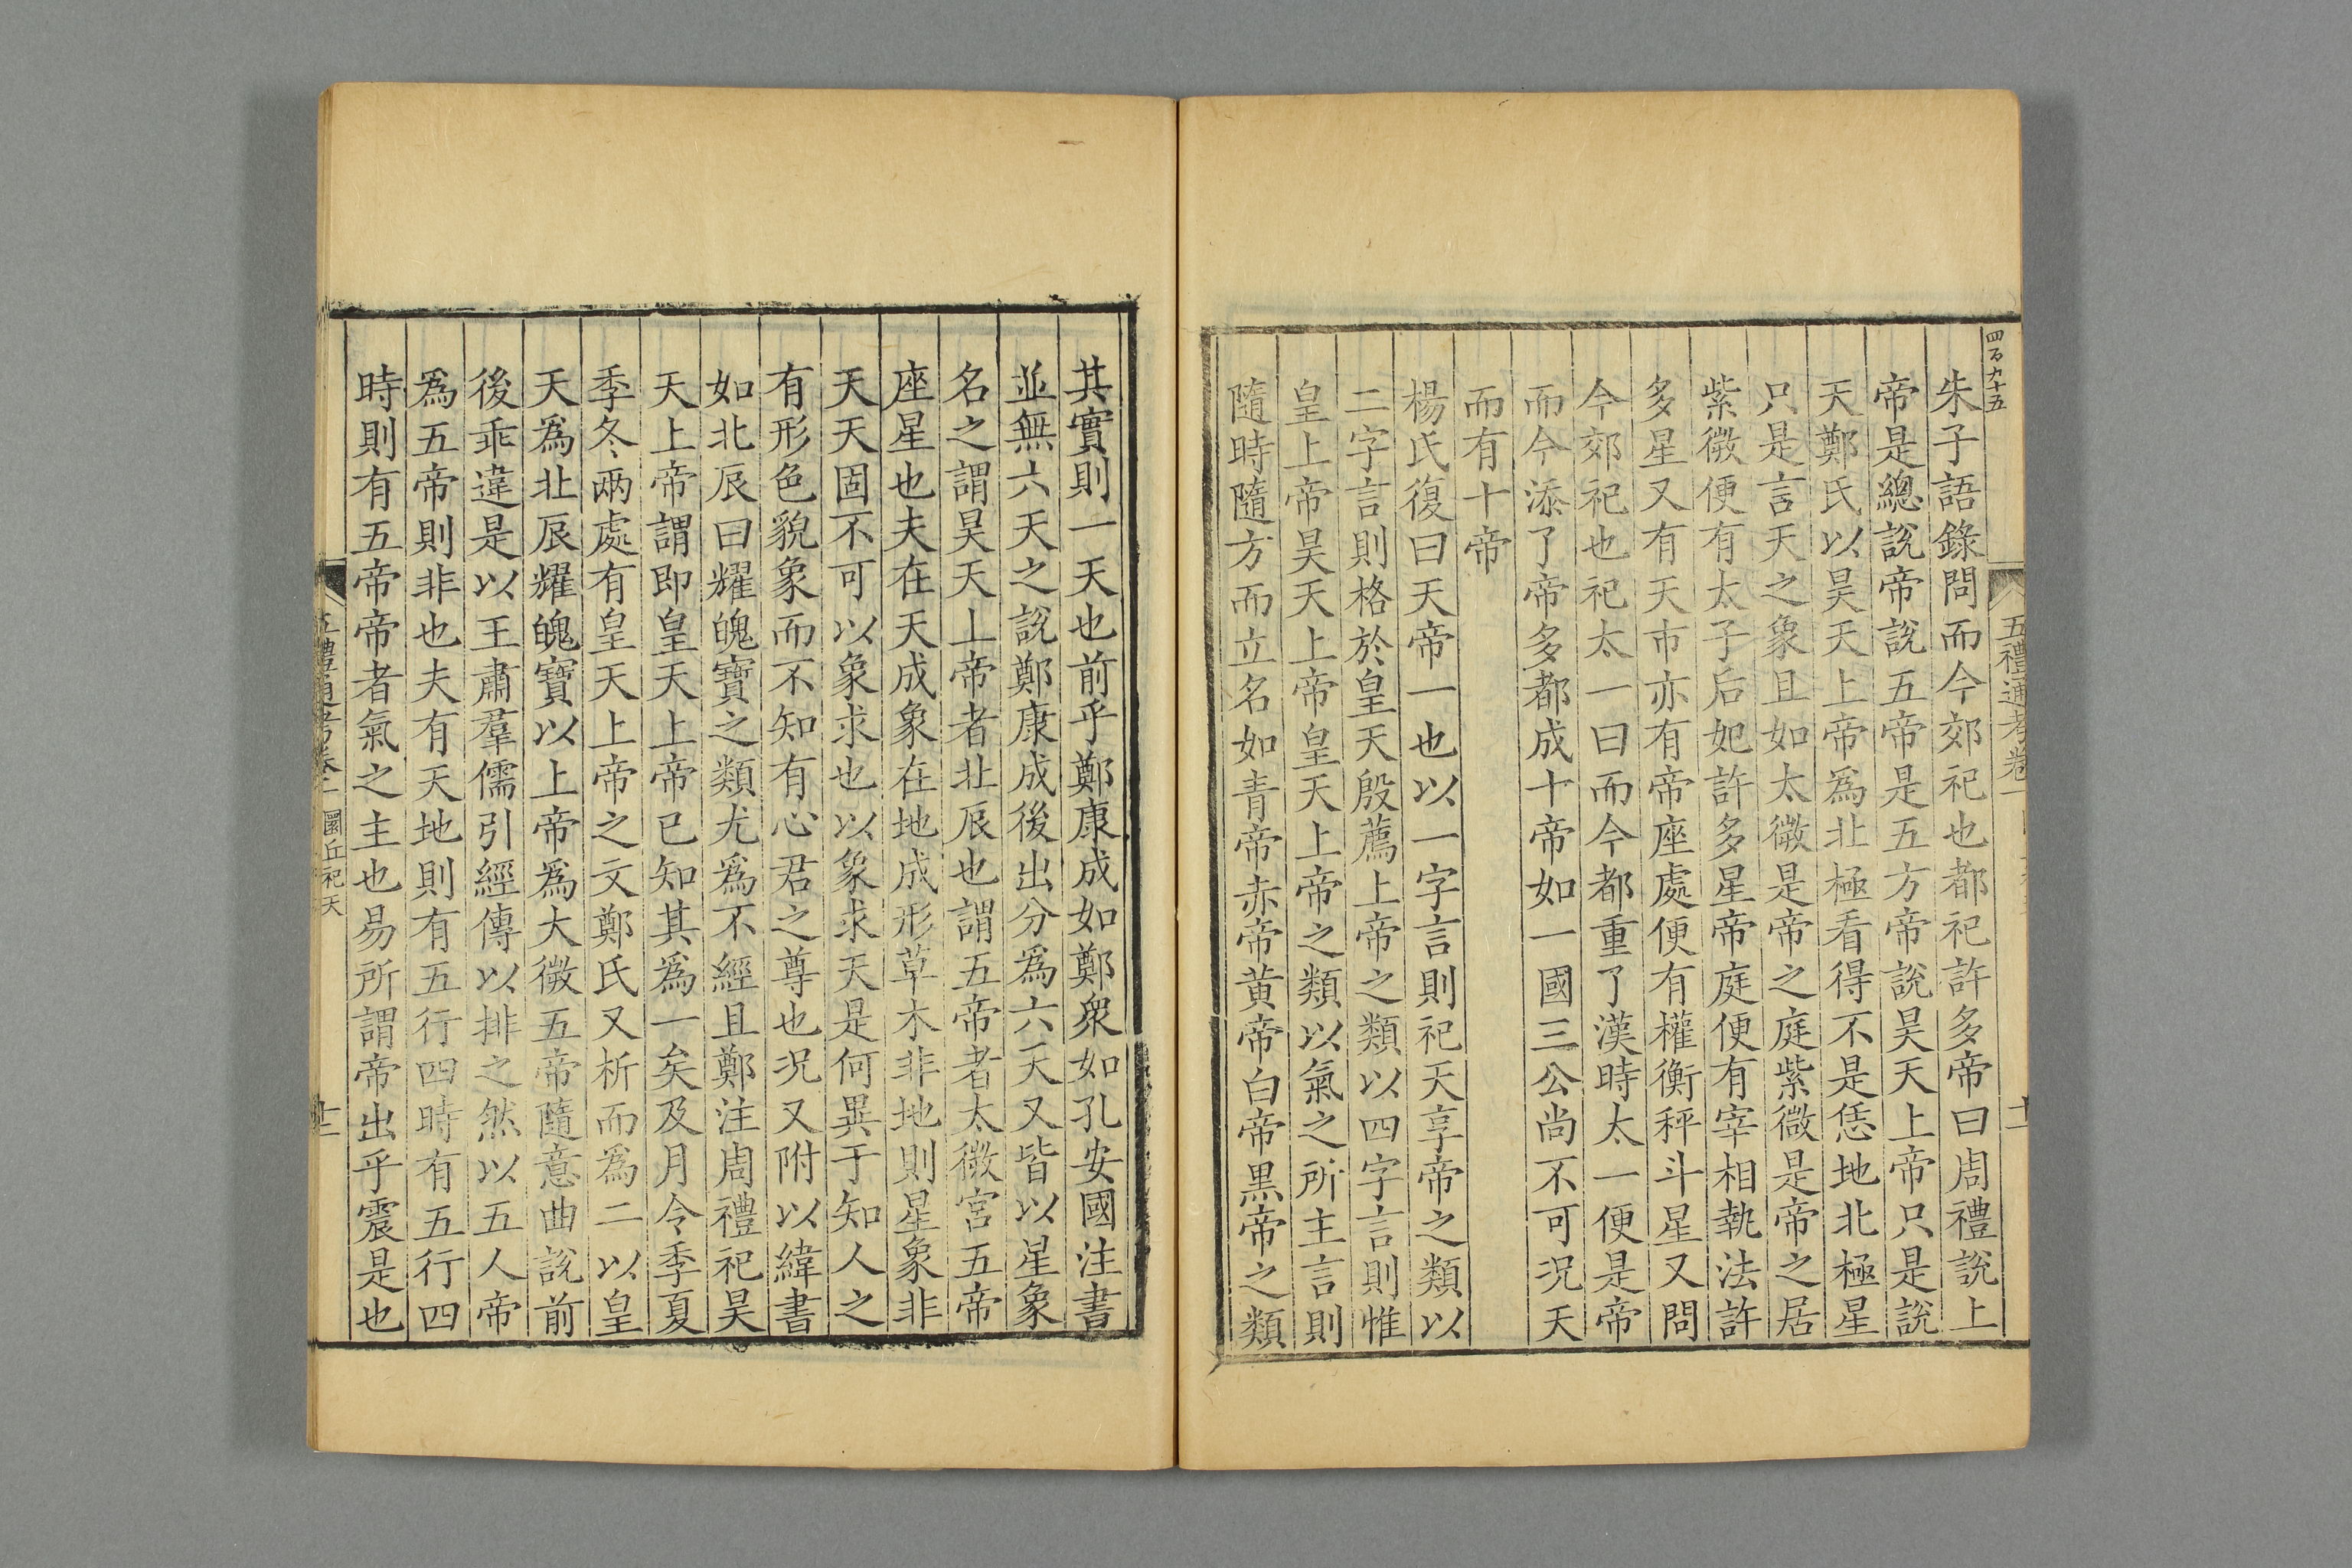 四百九十五
五禮通考卷一
十一
朱子語錄問而今郊祀也都祀許多帝曰周禮說上
帝是總說帝說五帝是五方帝說昊天上帝只是說
天鄭氏以昊天上帝為北極看得不是恁地北極星
只是言天之象且如太微是帝之庭紫微是帝之居
紫微便有太子后妃許多星帝庭便有宰相執法許
多星又有天市亦有帝座處便有權衡秤斗星又問
今郊祀也祀太一曰而今都重了漢時太一便是帝
而今添了帝多都成十帝如一國三公尚不可況天
而有十帝
楊氏復曰天帝一也以一字言則祀天享帝之類以
二字言則格於皇天殷薦上帝之類以四字言則惟
皇上帝昊天上帝皇天上帝之類以氣之所主言則
隨時隨方而立名如青帝赤帝黃帝白帝黑帝之類
其實則一天也前乎鄭康成如鄭衆如孔安國注書
並無六天之說鄭康成後出分為六天又皆以星象
名之謂昊天上帝者北辰也謂五帝者太微宮五帝
座星也夫在天成象在地成形草木非地則星象非
天天固不可以象求也以象求天是何異于知人之
有形色貌象而不知有心君之尊也況又附以緯書
如北辰曰耀魄寶之類尤為不經且鄭注周禮祀昊
天上帝謂即皇天上帝已知其為一矣及月令季夏
季冬兩處有皇天上帝之文鄭氏又析而為二以皇
天為北辰耀魄寶以上帝為大微五帝隨意曲說前
後乖違是以王肅羣儒引經傳以排之然以五人帝
為五帝則非也夫有天地則有五行四時有五行四
時則有五帝帝者氣之主也易所謂帝出乎震是也
五禮通考卷一
圜丘祀天
十二